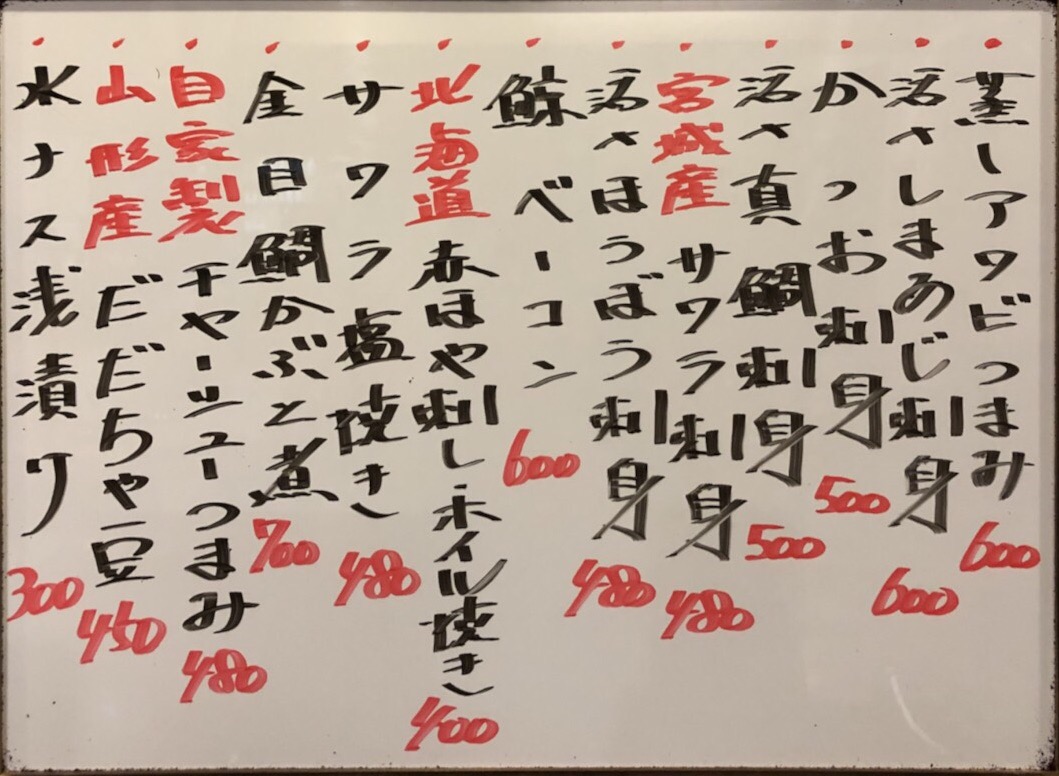 蒸しアワビつまみ 600
活〆しまあじ刺身 600
かつお刺身 500
活〆真鯛刺身 500
宮城産サワラ刺身 480
活〆ほうぼう刺身 480
鯨ベーコン 600
北海道赤ほや刺し・ホイル焼き 400
サワラ塩焼き 480
金目鯛かぶと煮 700
自家製チャーシューつまみ 480
山形産だだちゃ豆 450
水ナス浅漬け 300